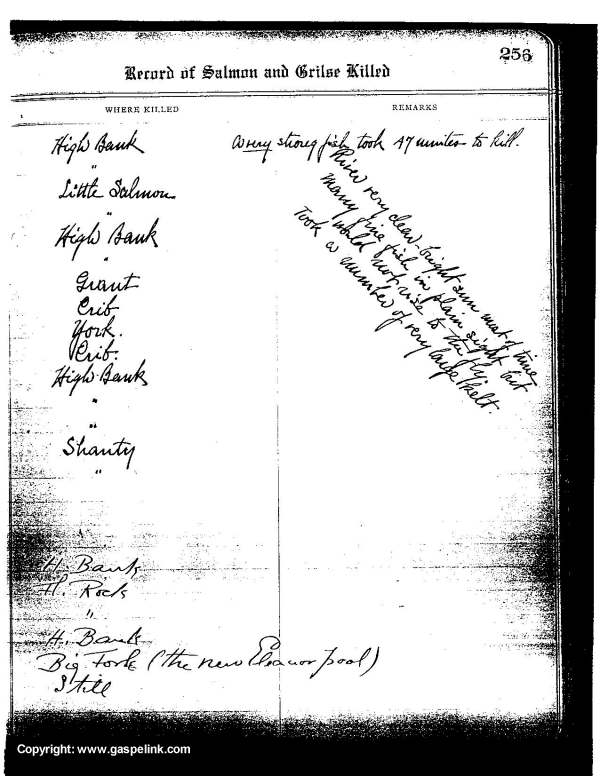 256
Record of Salmon and Grilse Killed
WHERE KILLED
REMARKS
High Bank
A very strong fish took 47 minutes to kill.
"
Little Salmon
"
High Bank
"
Grant
Crib
York.
Crib.
High Bank
"
"
Shanty
"
River very clear - bright sun most of time
Many fine fish in plain sight but
would not rise to the fly.
Took a number of very large kelt.
H. Bank
H. Rock
"
H. Bank
Big Fork (the new Eleanor pool)
Still
Copyright: www.gaspelink.com